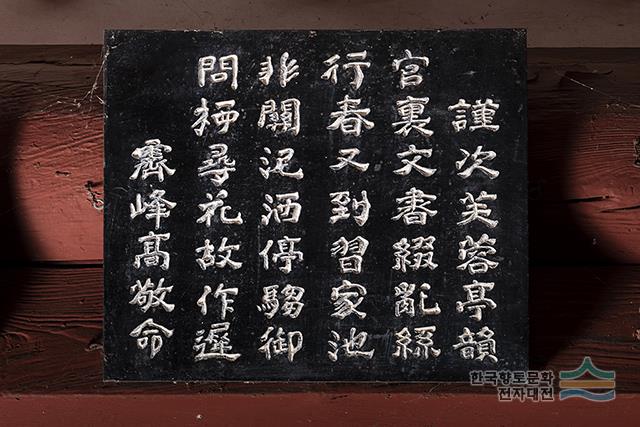 謹次芙蓉亭韻
官裏文書綴亂絲
行春又到習家池
非關泥酒停騶御
問柳尋花故作遲
霽峰高敬命
한국향토문화
전자대전